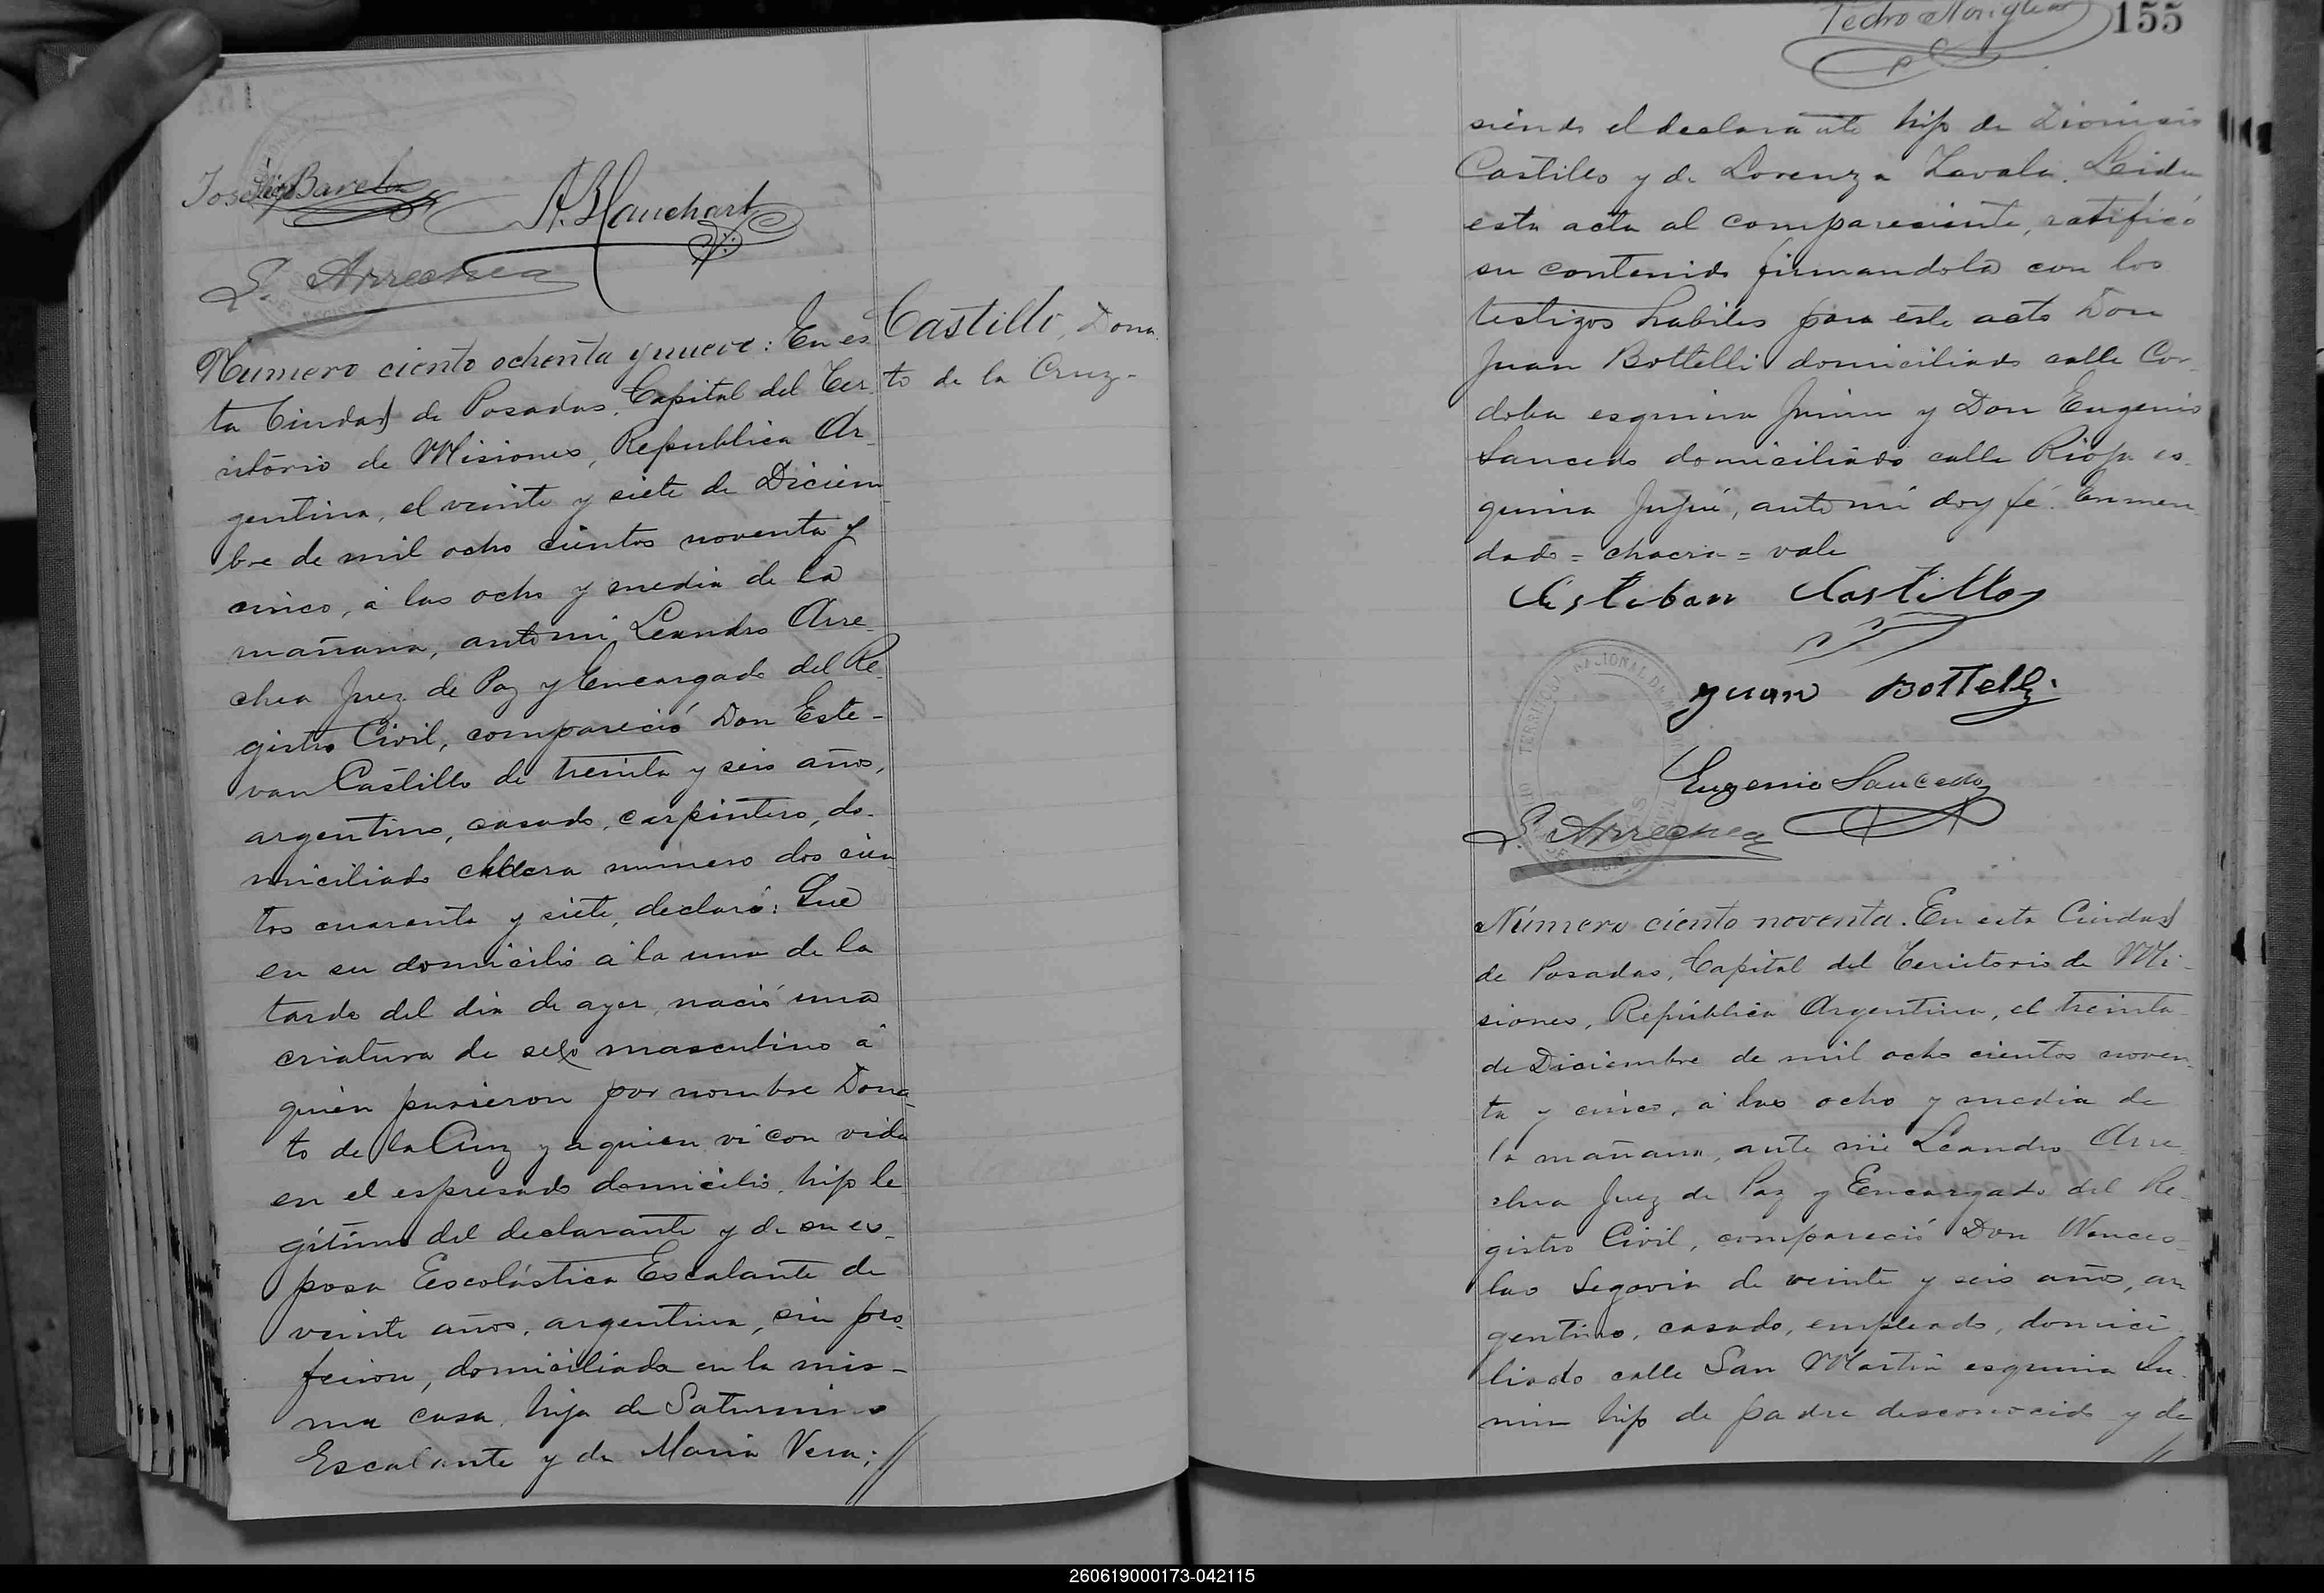 José Barela
A. Blanchart
L. Arrechea
Numero ciento ochenta y nueve: En es
ta Ciudad de Posadas, Capital del Ter
ritorio de Misiones, Republica Ar
gentina, el veinte y siete de Diciem
bre de mil ocho cientos noventa y
cinco, á las ocho y media de la
mañana, ante mi Leandro Arre
chea Juez de Paz y Encargado del Re
gistro Civil, compareció Don Este-
van Castillo de treinta y seis años,
argentino, casado, carpintero, do-
miciliado chacra numero dos cien
tos cuarenta y siete, declaró: Que
en su domicilio á la una de la
tarde del dia de ayer, nació una
criatura de sexo masculino á
quien pusieron por nombre Dona
to de la Cruz y a quien vi con vida
en el espresado domicilio, hijo le
gítimo del declarante y de su es-
posa Escolástica Escalante de
veinte años, argentina, sin pro-
fecion, domiciliada en la mis-
ma casa, hija de Saturnino
Escalante y de Maria Vera; //
Castillo, Dona
to de la Cruz-
Pedro
155
siendo el declarante hijo de Dionisio
Castillo y de Lorenza Zavala. Leida
esta acta al compareciente, ratificó
su contenido firmandola con los
testigos habiles para este acto Don
Juan Bottelli domiciliado calle Cor-
doba esquina Junin y Don Eugenio
Saucedo domiciliado calle Rioja es-
quina Jujui, ante mi doy fé. Enmen
dado = chacra = vale
Esteban Castillo
Juan Bottelli
Eugenio Saucedo
L. Arrechea
Número ciento noventa. En esta Ciudad
de Posadas, Capital del Territorio de Mi-
siones, República Argentina, el treinta
de Diciembre de mil ocho cientos noven
ta y cinco, á las ocho y media de
la mañana, ante mi Leandro Arre
chea Juez de Paz y Encargado del Re-
gistro Civil, compareció Don Wences-
lao Segovia de veinte y seis años, ar
gentino, casado, empleado, domici
liado calle San Martin esquina Ju-
nin hijo de padre desconocido y de
//
260619000173-042115